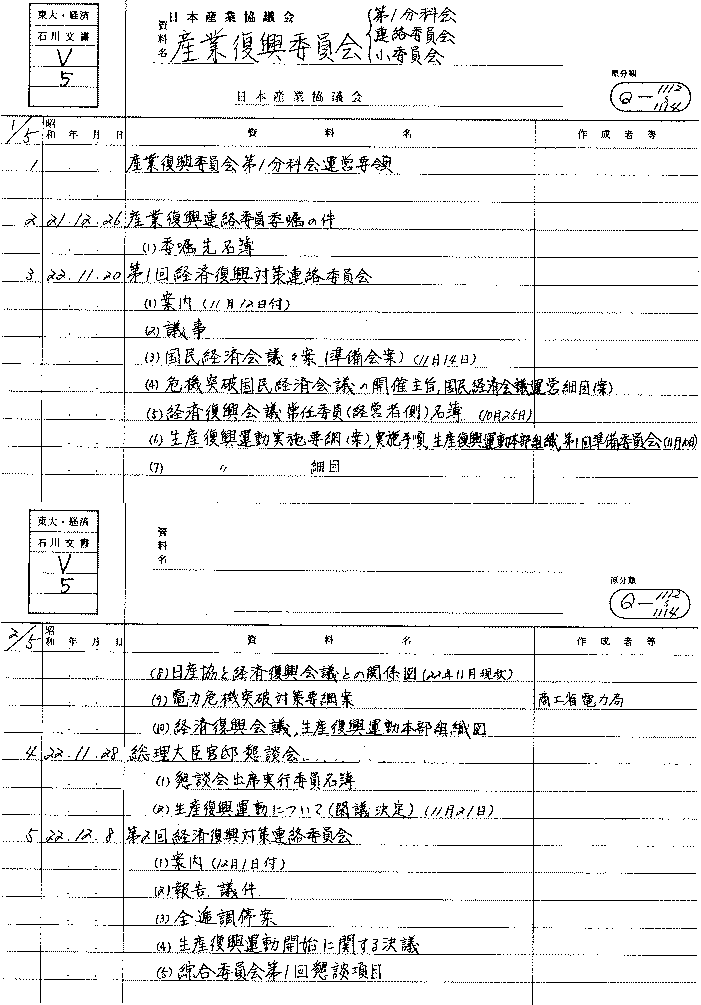 東大・経済
石川文書
V
5
日本産業協議会
資料名
産業復興委員会
第1分科会
連絡委員会
小委員会
日本産業協議会
原分類
Q-1112
1114
1/5 昭和 年 月 日 資 料 名 作成者等
1 産業復興委員会第1分科会運営要領
2 21.12.26 産業復興連絡委員委嘱の件
(1) 委嘱先名簿
3 22.11.20 第1回経済復興対策連絡委員会
(1) 案内 (11月12日付)
(2) 議事
(3) 国民経済会議 案 (準備会案) (11月14日)
(4) 危機突破国民経済会議の開催主旨, 国民経済会議運営細目(案)
(5) 経済復興会議常任委員(経営者側)名簿 (10月25日)
(6) 生産復興運動実施要綱(案), 実施手順, 生産復興運動本部組織, 第1回準備委員会
(7) 〃 細目
東大・経済
石川文書
V
5
資料名
原分類
Q-1112
1114
2/5 昭和 年 月 日 資 料 名 作成者等
(8) 日産協と経済復興会議との関係図 (22年11月現状)
(9) 電力危機突破対策要綱案 商工省電力局
(10) 経済復興会議, 生産復興運動本部組織図
4 22.11.28 総理大臣官邸懇談会
(1) 懇談会出席実行委員名簿
(2) 生産復興運動について(閣議決定) (11月21日)
5 22.12.8 第2回経済復興対策連絡委員会
(1) 案内 (12月1日付)
(2) 報告, 議件
(3) 全逓調停案
(4) 生産復興運動開始に関する決議
(5) 綜合委員会第1回懇談項目